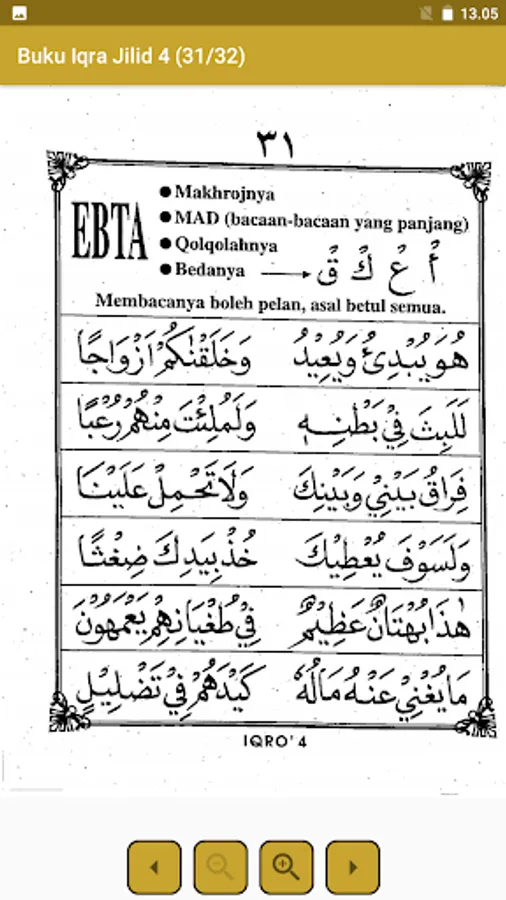 13.05
Buku Iqra Jilid 4 (31/32)
٣١
EBTA
● Makhrojnya
● MAD (bacaan-bacaan yang panjang)
● Qolqolahnya
● Bedanya → أُ عُ كُ قُ
Membacanya boleh pelan, asal betul semua.
هُوَ يُبْدِئُ وَيُعِيْدُ وَخَلَقْنٰكُمْ اَزْوَاجًا
لَلَبِثَ فِيْ بَطْنِهٖ وَلَمُلِئْتَ مِنْهُمْ رُعْبًا
فِرَاقُ بَيْنِيْ وَبَيْنِكَ وَلَا تَحْمِلْ عَلَيْنَا
وَلَسَوْفَ يُعْطِيْكَ خُذْ بِيَدِكَ ضِغْثًا
هٰذَا بُهْتَانٌ عَظِيْمٌ فِيْ طُغْيَانِهِمْ يَعْمَهُوْنَ
مَا يُغْنِيْ عَنْهُ مَالُهٗ كَيْدَهُمْ فِيْ تَضْلِيْلٍ
IQRO' 4